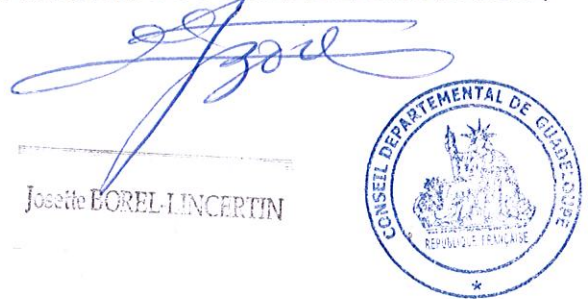 Josette BOREL-LINCERTIN
CONSEIL DEPARTEMENTAL DE GUADELOUPE
REPUBLIQUE FRANÇAISE